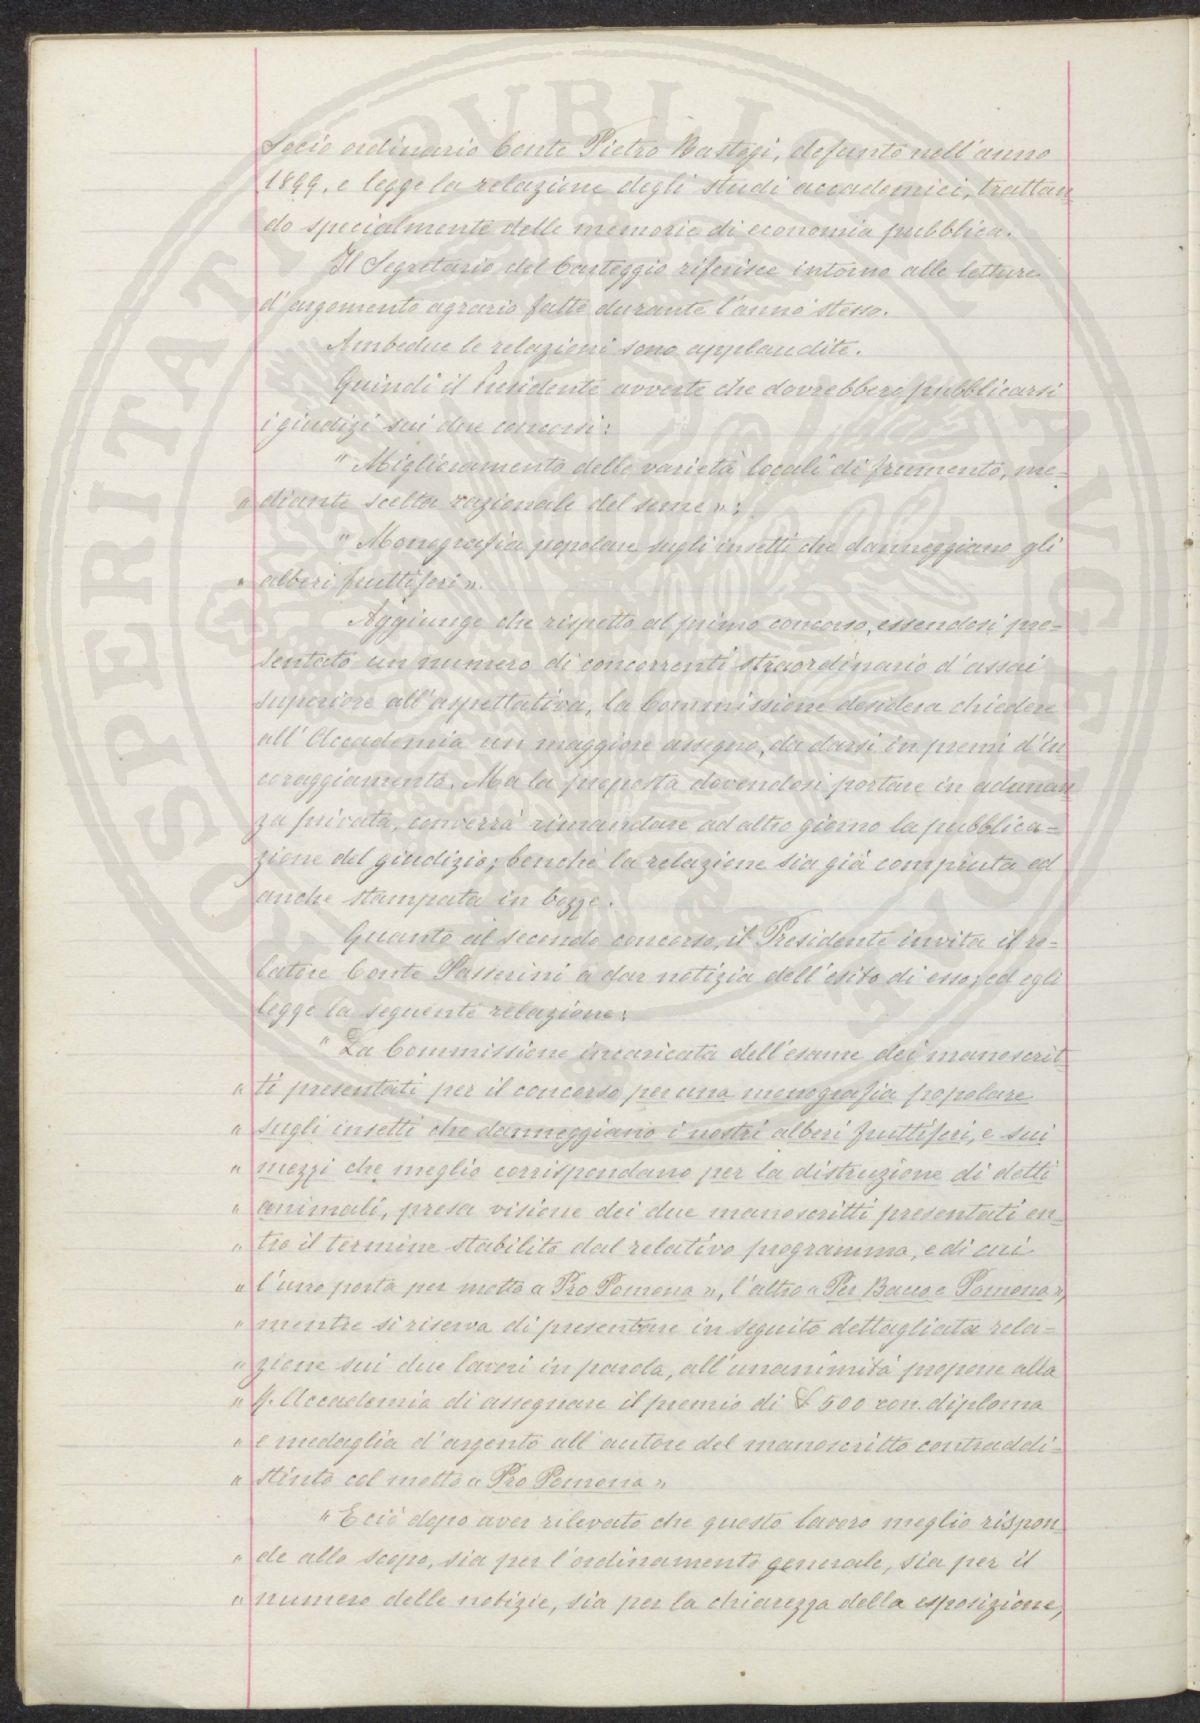 Socio ordinario Conte Pietro Bastogi, defunto nell'anno
1899, e legge la relazione degli studi accademici, trattan
do specialmente delle memorie di economia pubblica.
Il Segretario del Carteggio riferisce intorno alle letture
d'argomento agrario fatte durante l'anno stesso.
Ambedue le relazioni sono applaudite.
Quindi il Presidente avverte che dovrebbero pubblicarsi
i giudizi sui due concorsi:
"Miglioramento delle varietà locali di frumento, me-
" diante scelta razionale del seme";
"Monografia popolare sugli insetti che danneggiano gli
" alberi fruttiferi".
Aggiunge che rispetto al primo concorso, essendosi pre-
sentato un numero di concorrenti straordinario d'assai
superiore all'aspettativa, la Commissione desidera chiedere
all'Accademia un maggiore assegno, da darsi in premi d'in
coraggiamento. Ma la proposta dovendosi portare in adunan
za privata, converrà rimandare ad altro giorno la pubblica-
zione del giudizio; benchè la relazione sia già compiuta ed
anche stampata in bozze.
Quanto al secondo concorso, il Presidente invita il re-
latore Conte Passerini a dar notizia dell'esito di esso; ed egli
legge la seguente relazione:
"La Commissione incaricata dell'esame dei manoscrit-
" ti presentati per il concorso per una monografia popolare
" sugli insetti che danneggiano i nostri alberi fruttiferi, e sui
" mezzi che meglio corrispondano per la distruzione di detti
" animali, presa visione dei due manoscritti presentati en-
" tro il termine stabilito dal relativo programma, e di cui
" l'uno porta per motto "Pro Pomona", l'altro "Per Bacco e Pomona",
" mentre si riserva di presentare in seguito dettagliata rela-
" zione sui due lavori in parola, all'unanimità propone alla
" R. Accademia di assegnare il premio di £ 500 con diploma
" e medaglia d'argento all'autore del manoscritto contraddi-
" stinto col motto "Pro Pomona"
"E ciò dopo aver rilevato che questo lavoro meglio rispon-
" de allo scopo, sia per l'ordinamento generale, sia per il
" numero delle notizie, sia per la chiarezza della esposizione,
SPERITATI PVBLICAE AVGENDAE